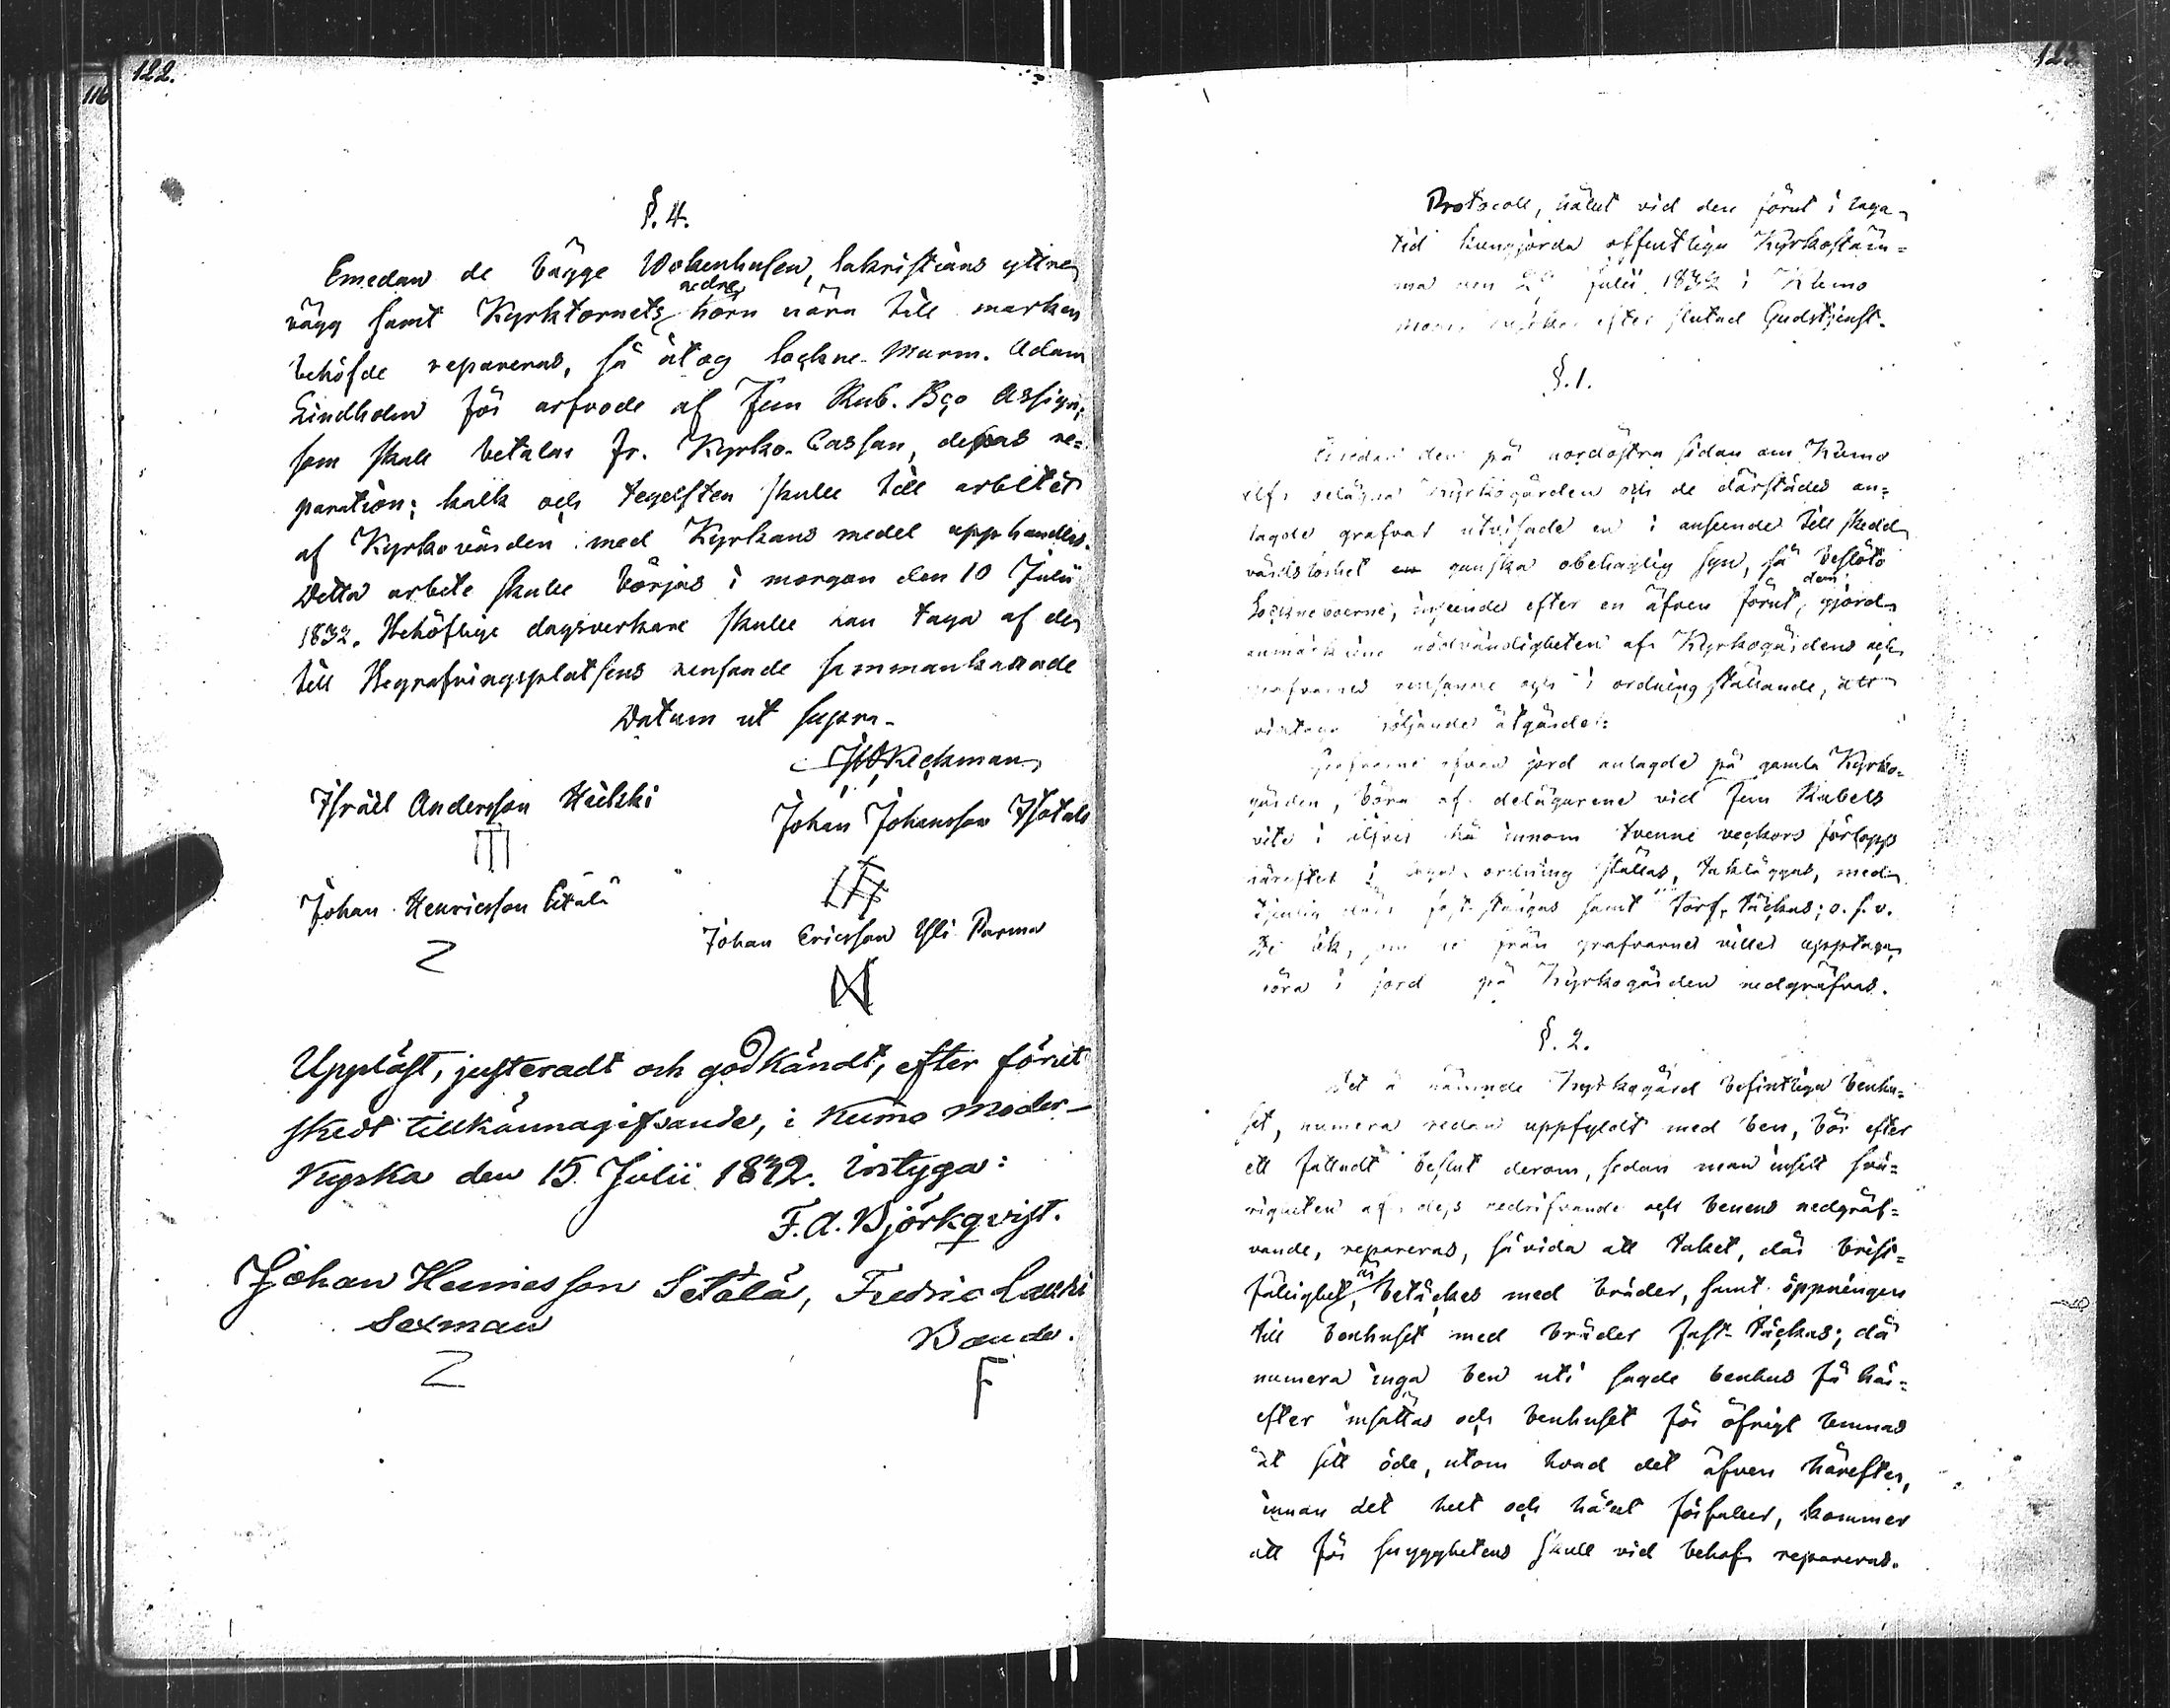 122.
116
§. 4.
Emedan de bägge Wokenhusen, Sakristians yttre
vägg samt Kyrktornets nedre hörn nära till marken
behöfde repareras, så åtog Sockne-Murm. Adam
Lindholm för arfvode af fem Rub. Bco Assign.
som skall betalas fr. Kyrko-Cassan, dessas re=
paration; kalk och tegelsten skulle till arbetet
af Kyrkovärden med Kyrkans medel upphandlas.
Detta arbete skulle börjas i morgon den 10 Julii
1832. Behöflige dagsverkare skulle han taga af de
till Begrafningsplatsens rensande sammankallade
Datum ut supra.
Israël Andersson Hiitski
Johan Johansson Isotalo
Johan Henricsson Sitälä
Johan Ericsson Yli Parma
Uppläst, justeradt och godkändt, efter förut
skedt tillkännagifvande, i Kumo Moder-
Kyrka den 15 Julii 1832. intyga:
F. A. Björkqvist.
Johan Henricsson Setälä, Fredric Lauri
Sexman
Bonde.
Z
F
Protocoll, hållet vid den förut i laga
tid kungjorda offentliga Kyrkostäm=
ma den julii 1832 i Kumo
efter slutad Gudstjenst.
§. 1.
Emedan den på nordöstra sidan om Kumo
elf belägna Kyrkogården och de därstädes an=
lagde grafvar utvisade en i anseende till skedd
vårdslöshet ganska obehaglig syn, så beslöto
Socknеboerne, inseende efter en äfven förut, dem gjord
anmärkning nödvändigheten af Kyrkogårdens och
grafvarnes rensande och i ordning ställande, att
vidtaga följande åtgärder:
Grafvarne ofvan jord anlagde på gamla Kyrko=
gården, böra af delägarene vid fem Rubels
vite i silfver innom tvenne veckors förlopp
härefter i ordning ställas, takläggas, med
fast stängas samt torf-täckas; o. s. v.
De lik, som från grafvarnes upptagas
böra i jord på Kyrkogården nedgräfvas.
§. 2.
Det å nämnde Kyrkogård befintliga benhu=
set, numera redan uppfyldt med ben, bör efter
ett fattadt beslut derom, sedan man insett svå=
righeten af dess nedrifvande och benens nedgräf=
vande, repareras, såvida att taket, där brist=
fällighet är, betäckes med bräder, samt öppningen
till benhuset med bräder fast-täckas; då
numera inga ben uti sagde benhus få här=
efter insättas och benhuset för öfrigt lemnas
åt sitt öde, utom hvad det äfven härefter,
innan det helt och hållet förfaller, kommer
att för snygghetens skull vid behof repareras.